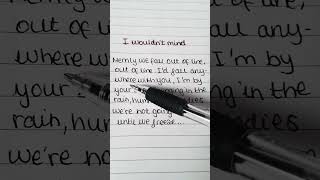 I wouldn't mind
Merrily we fall out of line,
out of line I'd fall any-
where with you, I'm by
your in the
rain,
we're not going
until we freeze...